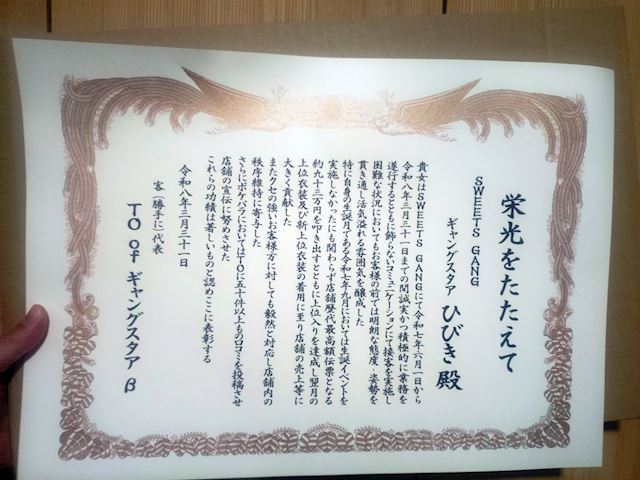 栄光をたたえて
SWEETS GANG
ギャングスタア ひびき 殿
貴女はSWEETS GANGにて令和七年六月一日から
令和八年三月三十一日までの間誠実かつ積極的に業務を
遂行するとともに飾らないコミュニケーションにて接客を実施し
困難な状況においてもお客様の前では明朗な態度・姿勢を
貫き通し活気溢れる雰囲気を醸成した
特に自身の生誕月である令和七年九月においては生誕イベントを
実施しなかったにも関わらず店舗歴代最高額伝票となる
約九十三万円を叩き出すとともに上位入りを達成し翌月の
上位衣装及び新上位衣装の着用に至り店舗の売上等に
大きく貢献した
またクセの強いお客様方に対しても毅然と対応し店舗内の
秩序維持に寄与した
さらにポケパラにおいてはTOに五十件以上もの口コミを投稿させ
店舗の宣伝に努めさせた
これらの功績は著しいものと認めここに表彰する
令和八年三月三十一日
客（勝手に）代表
TO of ギャングスタア β